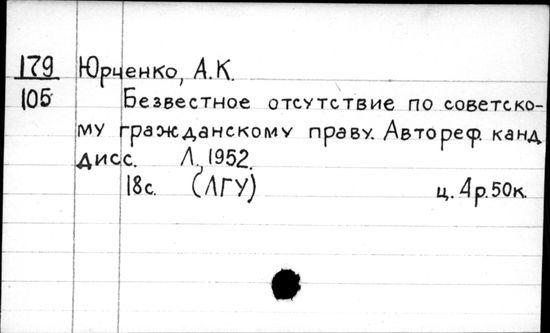 179 Юрченко, А.К.
105 Безвестное отсутствие по советско-
му гражданскому праву. Автореф. канд
дисс. Л., 1952.
18с. (ЛГУ) ц. 4р.50к.